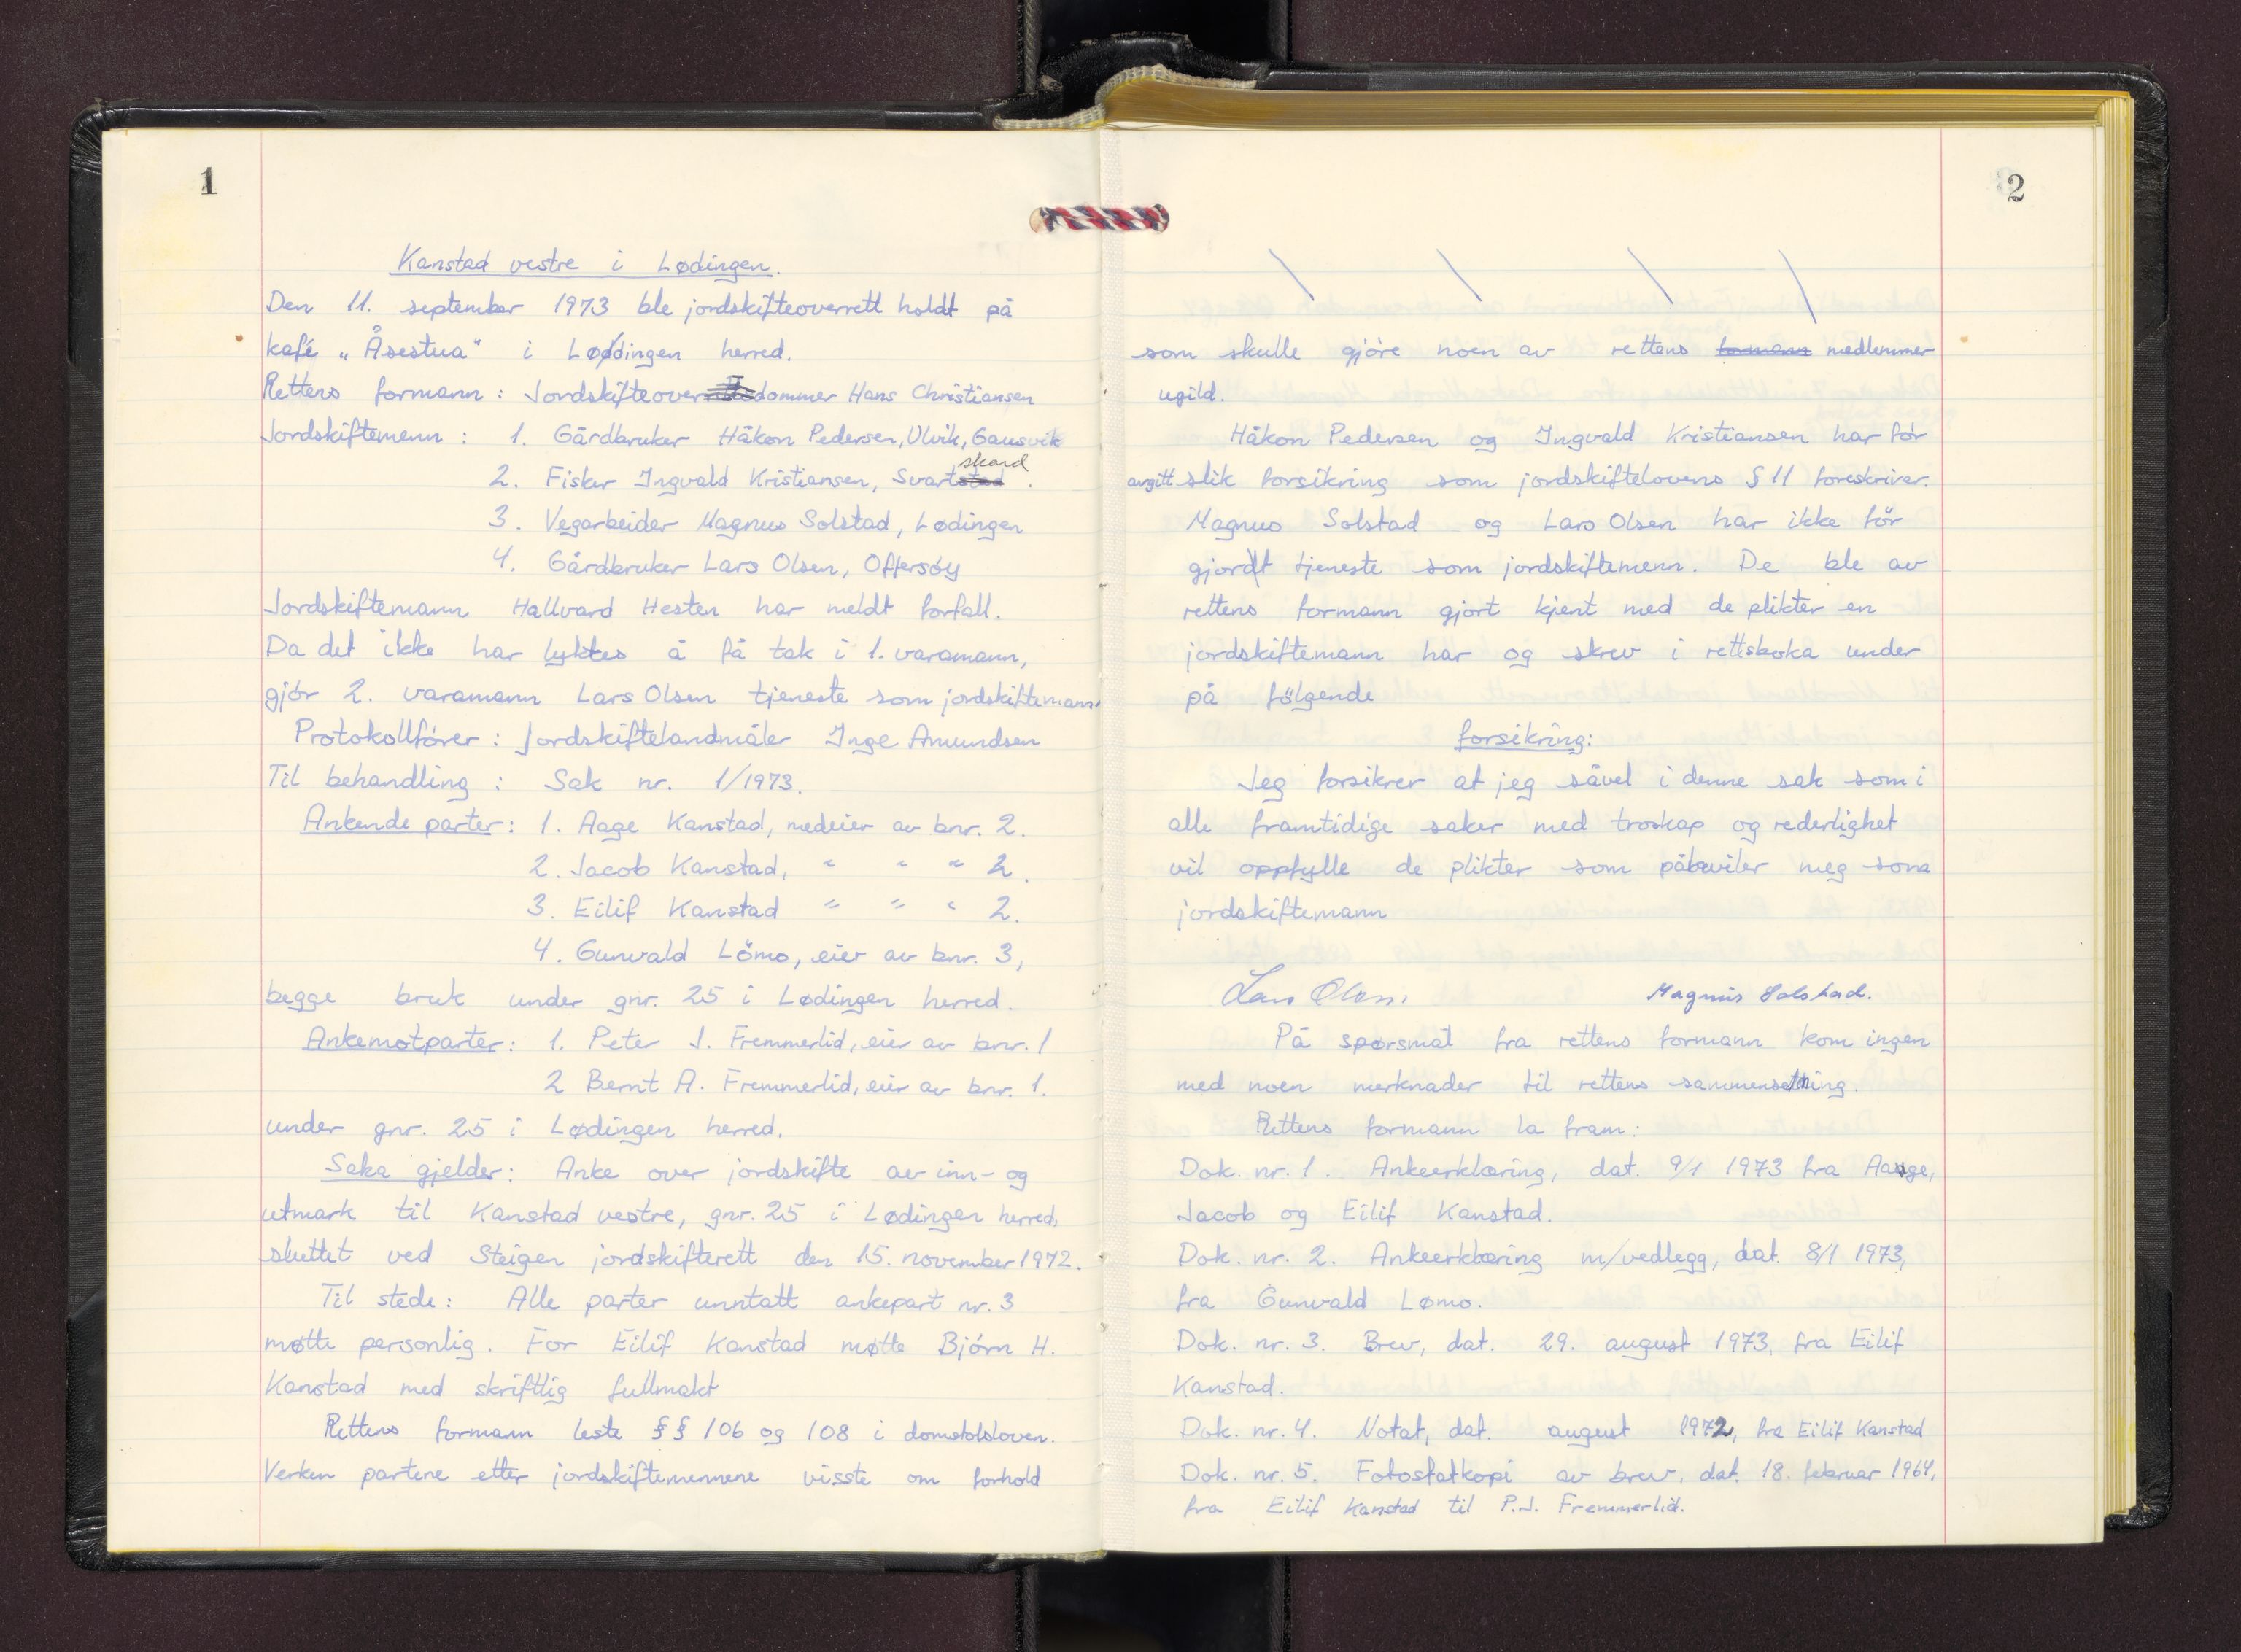 1
Kanstad vestre i Lødingen.
Den 11. september 1973 ble jordskifteoverrett holdt på
kafé „Åsestua" i Lødingen herred.
Rettens formann: Jordskifteoverdommer Hans Christiansen
Jordskiftemenn: 1. Gårdbruker Håkon Pedersen, Ulvik, Gausvik
2. Fisker Ingvald Kristiansen, Svartskard.
3. Vegarbeider Magnus Solstad, Lødingen
4. Gårdbruker Lars Olsen, Offersøy
Jordskiftemann Hallvard Hesten har meldt forfall.
Da det ikke har lyktes å få tak i 1. varamann,
gjör 2. varamann Lars Olsen tjeneste som jordskiftemann.
Protokollfører: Jordskiftelandmåler Inge Amundsen
Til behandling: Sak nr. 1/1973.
Ankende parter: 1. Aage Kanstad, medeier av bnr. 2.
2. Jacob Kanstad, " " " 2.
3. Eilif Kanstad " " " 2.
4. Gunvald Lömo, eier av bnr. 3,
begge bruk under gnr. 25 i Lødingen herred.
Ankemotparter: 1. Peter J. Fremmerlid, eier av bnr. 1
2 Bernt A. Fremmerlid, eier av bnr. 1.
under gnr. 25 i Lødingen herred.
Saka gjelder: Anke over jordskifte av inn- og
utmark til Kanstad vestre, gnr. 25 i Lødingen herred,
sluttet ved Steigen jordskifterett den 15. november 1972.
Til stede: Alle parter unntatt ankepart nr. 3
møtte personlig. For Eilif Kanstad møtte Bjørn H.
Kanstad med skriftlig fullmakt
Rettens formann leste §§ 106 og 108 i domstolsloven.
Verken partene eller jordskiftemennene visste om forhold
2
som skulle gjöre noen av rettens formann medlemmer
ugild.
Håkon Pedersen og Ingvald Kristiansen har för
avgitt slik forsikring som jordskiftelovens § 11 foreskriver.
Magnus Solstad og Lars Olsen har ikke för
gjort tjeneste som jordskiftemenn. De ble av
rettens formann gjort kjent med de plikter en
jordskiftemann har og skrev i rettsboka under
på fölgende
forsikring:
Jeg forsikrer at jeg såvel i denne sak som i
alle framtidige saker med troskap og rederlighet
vil oppfylle de plikter som påhviler meg som
jordskiftemann
Lars Olsen
Magnus Solstad.
På spørsmål fra rettens formann kom ingen
med noen merknader til rettens sammensetning.
Rettens formann la fram:
Dok. nr. 1. Ankeerklæring, dat. 9/1 1973 fra Aage,
Jacob og Eilif Kanstad.
Dok. nr. 2. Ankeerklæring m/vedlegg, dat. 8/1 1973,
fra Gunvald Lømo.
Dok. nr. 3. Brev, dat. 29. august 1973, fra Eilif
Kanstad.
Dok. nr. 4. Notat, dat. august 1972, fra Eilif Kanstad
Dok. nr. 5. Fotostatkopi av brev, dat. 18. februar 1964,
fra Eilif Kanstad til P.J. Fremmerlid.